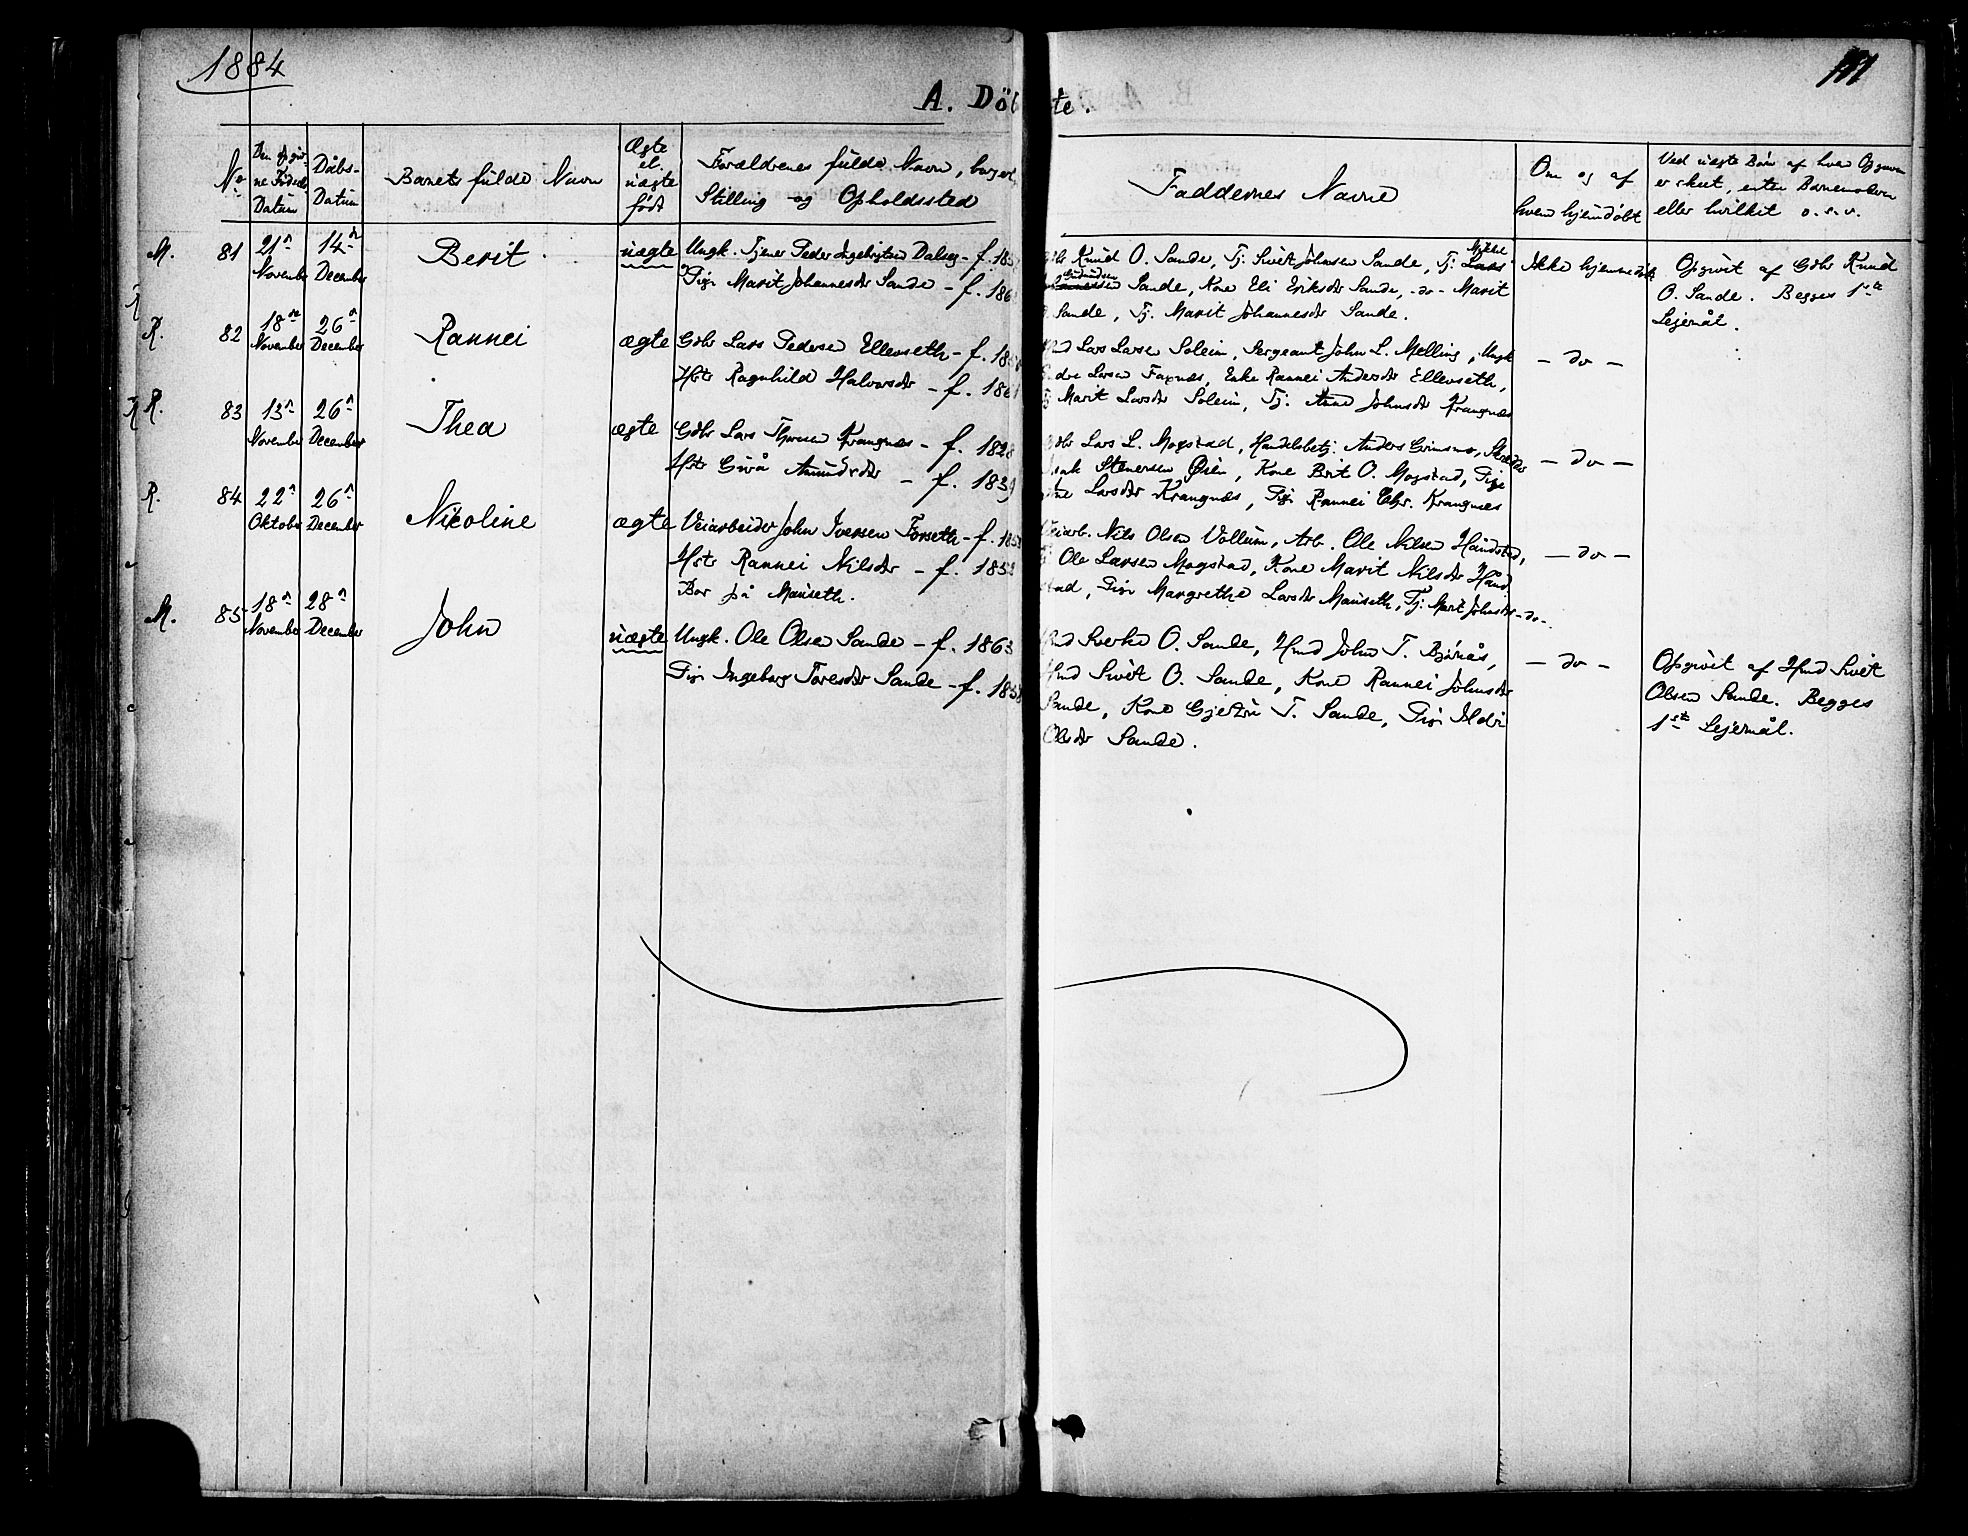 1884
A. Döbte.
No
Den opgiv-
ne Föds.
Datum
Dåbs-
Datum
Barnets fulde Navn
Ægte
el.
uægte
født
Forældrenes fulde Navn, borgerl.
Stilling og Opholdssted
Faddernes Navne
Om og af
hvem hjemdöbt
Ved uægte Börn af hvem Opgaven
er skeet, enten Barnemoderen
eller hvilket o.s.v.
M. 81 21n November 14n December Berit uægte
Ungk. Tjener Peder Ingebrigtsen Dalseg - f.
Pige Marit Johannesdr Sande - f.
Knud O. Sande, Tj. Sivert Johnsen Sande, Tj. Mikkel
Gudmundsen Sande, Kone Eli Eriksdr Sande, -do- Marit
Sande, Tj. Marit Johannesdr Sande.
Ikke hjemmedöbt
Opgivet af Gdbr Knud
O. Sande. Begges 1ste
Lejermål.
R. 82 18n November 26n December Rannei ægte
Gdbr Lars Pedersen Ellenseth - f.
Hstr Ragnhild Halvorsdr - f.
Lars Larsen Soleim, Sergeant John L. Melling, Ungk
Larsen Faxnæs, Enke Rannei Andersdr Ellenseth,
Marit Larsdr Soleim, Tj. Anne Johnsdr Krangnæs
- do -
R. 83 13n November 26n December Thea ægte
Gdbr Lars Thoresen Krangnæs - f. 1828
Hstr Gurå Amundsdr - f. 1839
Gdbr Lars L. Mogstad, Handelsbetj. Anders Grimsmo, Skrædder
Stenersen Øien, Kone Brit O. Mogstad, Pige
Larsdr Krangnæs, Pige Rannei Chr. Krangnæs
- do -
R. 84 22n Oktober 26n December Nicoline ægte
Veiarbeider John Iversen Forseth - f.
Hstr Rannei Nilsdr - f. 1853
Bor på Mauseth.
Veiarb. Nils Olsen Vollum, Arb. Ole Nilsen Håndstad,
Ole Larsen Mogstad, Kone Marit Nilsdr Hånd
stad, Pige Margrethe Larsdr Mauseth, Tj. Marit Johnsdr -do-
- do -
M. 85 18n November 28n December John uægte
Ungk. Ole Olsen Sande - f. 1863
Pige Ingeborg Toresdr Sande - f. 1858
Hmd Sverke O. Sande, Hmd John T. Bjørnås,
Hmd Sivert O. Sande, Kone Rannei Johnsdr
Sande, Kone Gjertru T. Sande, Pige Ildri
Olsdr Sande.
- do -
Opgivet af Hmd Sivert
Olsen Sande. Begges
1ste Lejermål.